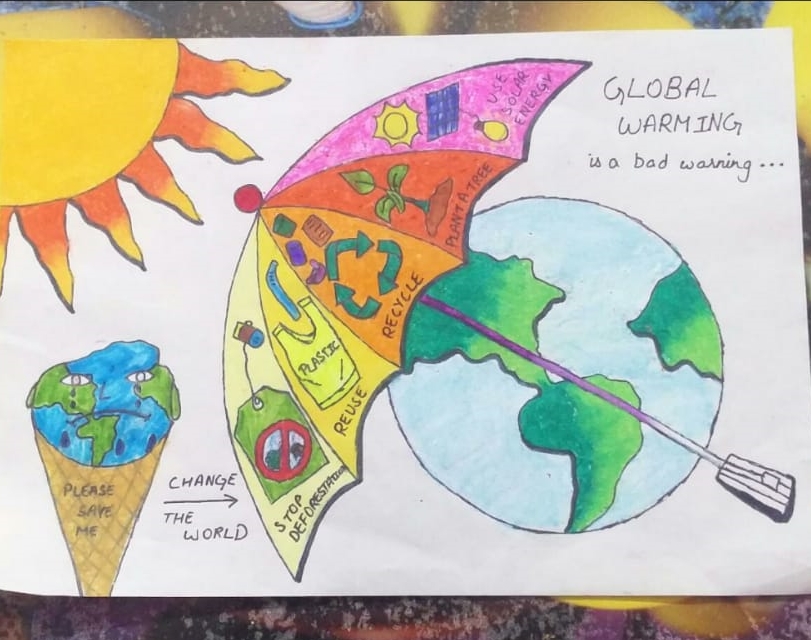 GLOBAL
WARMING
is a bad warning...
USE
SOLAR
ENERGY
PLANT A TREE
RECYCLE
PLASTIC
REUSE
STOP
DEFORESTATION
PLEASE
SAVE
ME
CHANGE
THE
WORLD